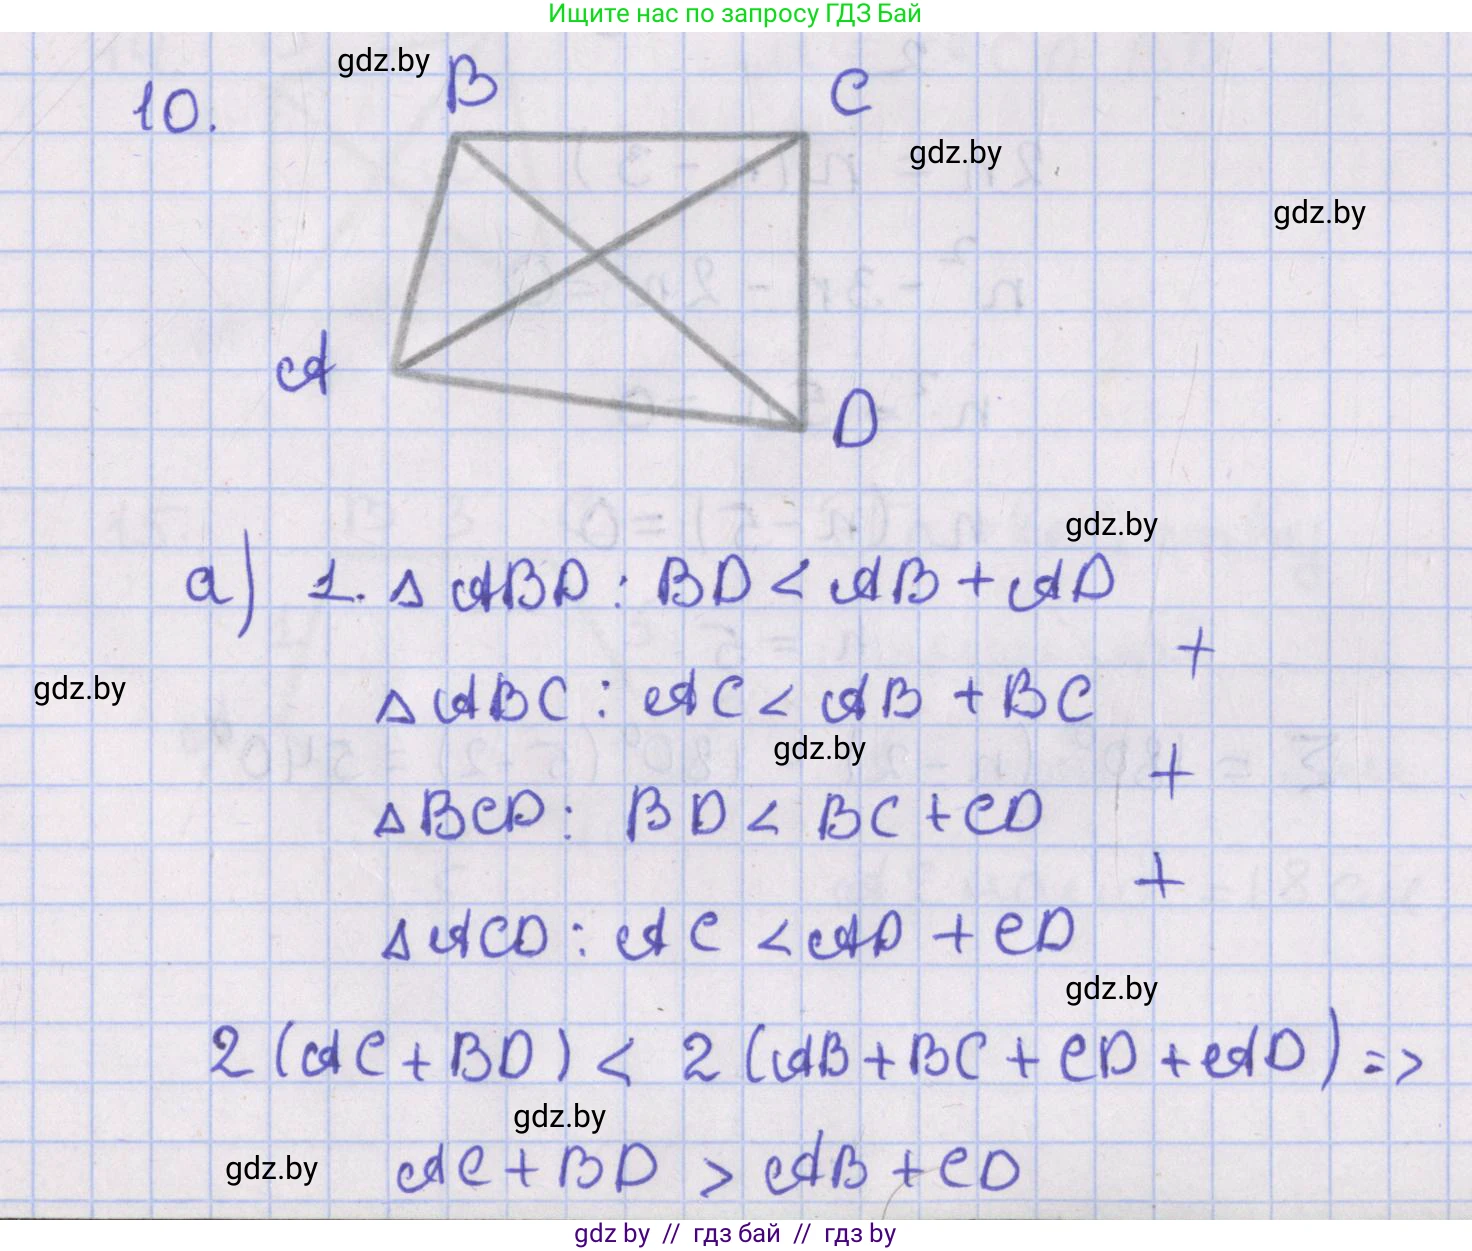 Ищите нас по запросу ГДЗ Бай
gdz.by
10.
B
C
gdz.by
gdz.by
A
D
gdz.by
а) 1. △ ABD : BD < AB + AD
+
gdz.by
△ ABC : AC < AB + BC
gdz.by
+
△ BCD : BD < BC + CD
+
△ ACD : AC < AD + CD
gdz.by
2 (AC + BD) < 2 (AB + BC + CD + AD) =>
gdz.by
gdz.by
AC + BD > AB + CD
gdz.by // гдз бай // гдз by